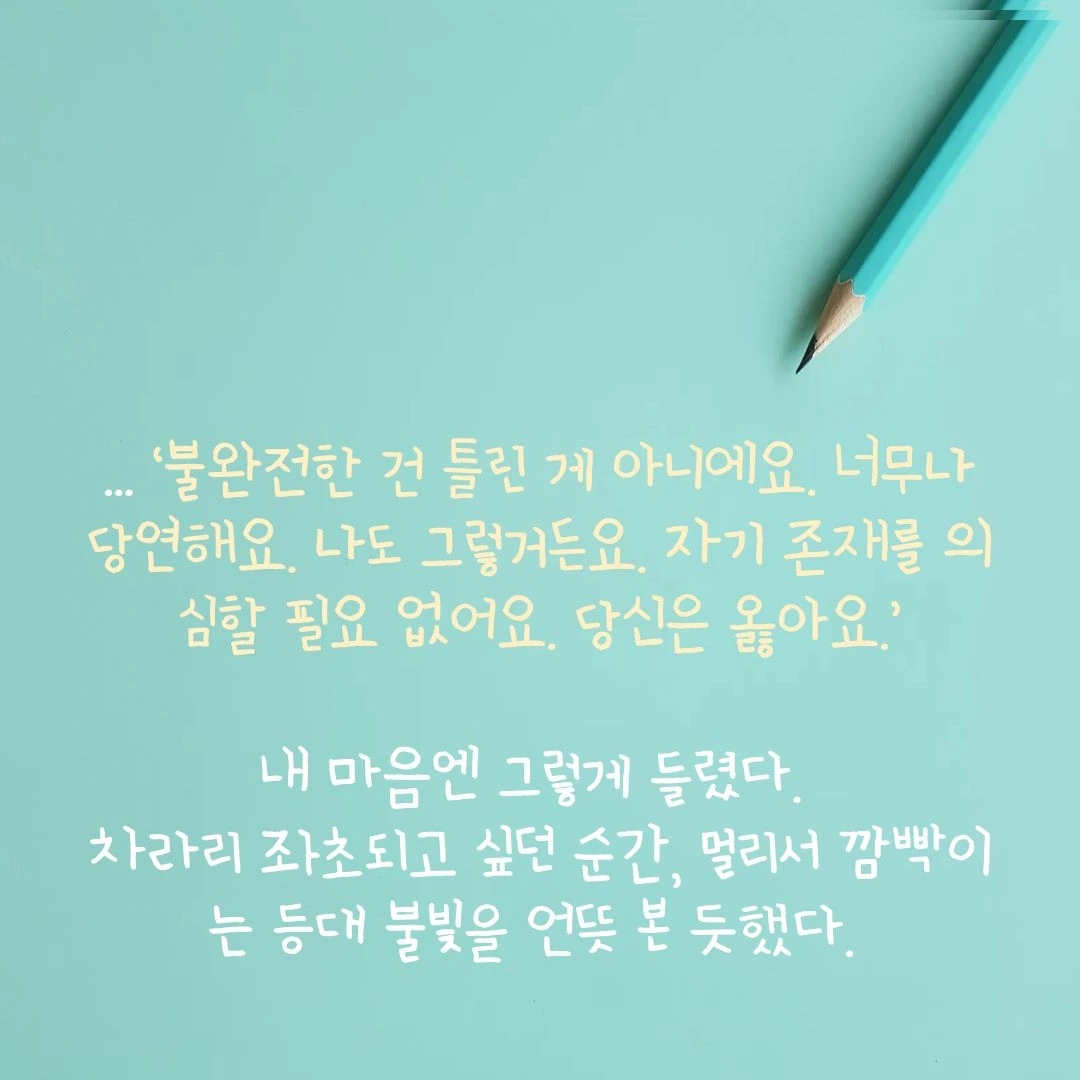 ... ‘불완전한 건 틀린 게 아니에요. 너무나
당연해요. 나도 그렇거든요. 자기 존재를 의
심할 필요 없어요. 당신은 옳아요.’
내 마음엔 그렇게 들렸다.
차라리 좌초되고 싶던 순간, 멀리서 깜빡이
는 등대 불빛을 언뜻 본 듯했다.